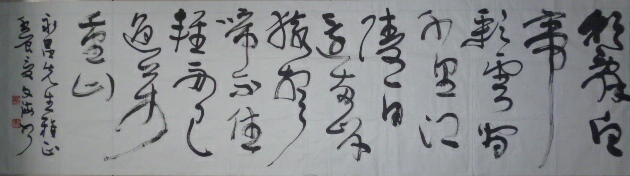 朝辭白
帝
彩雲間
千里江
陵一日
還兩岸
猿聲
啼不住
輕舟已
過萬
重山
永昌先生雅正